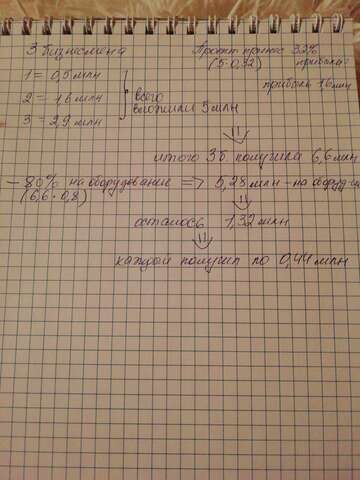 3 бизнесмена
1 = 0,5 млн
2 = 1,6 млн
3 = 2,9 млн
всего
вложили 5 млн
Проект принес 32%
(5·0,32) прибыли
прибыль 1,6 млн
итого 3б. получила 6,6 млн
- 80% на оборудование => 5,28 млн - на оборуд-ие
(6,6·0,8)
осталось 1,32 млн
каждой получил по 0,44 млн